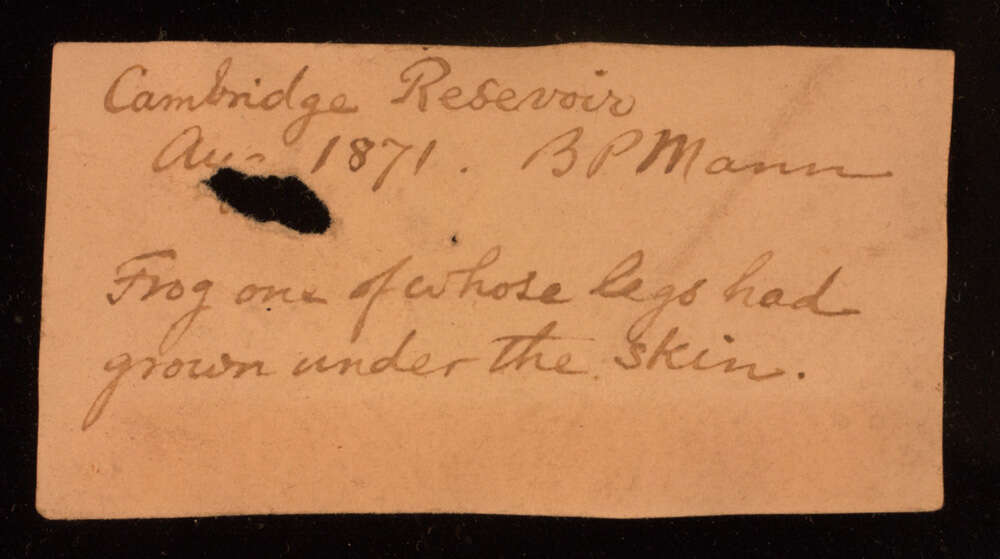 Cambridge Resevoir
Aug 1871. B P Mann
Frog one of whose legs had
grown under the skin.